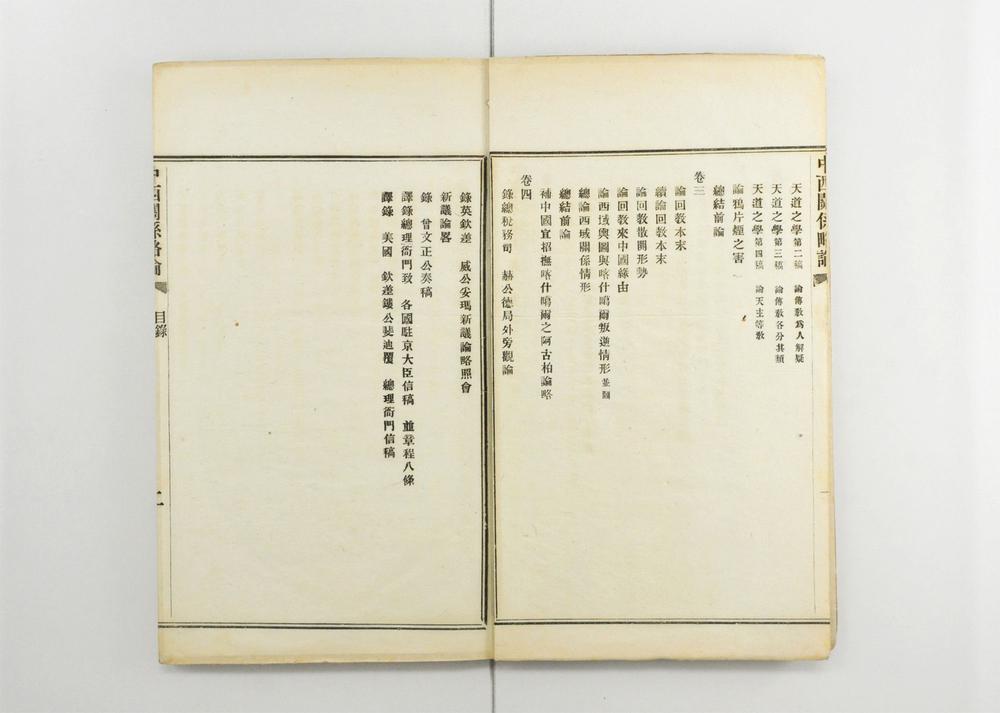 中西關係略論
天道之學 第二稿 論傳教為人解疑
天道之學 第三稿 論傳教各分其類
天道之學 第四稿 論天主等教
論鴉片煙之害
總結前論
卷三
論回教本末
續論回教本末
論回教散開形勢
論回教來中國緣由
論西域輿圖與喀什噶爾叛逆情形 並圖
總論西域關係情形
總結前論
補中國宜招撫喀什噶爾之阿古柏論略
卷四
錄總稅務司 赫公德局外旁觀論
錄英欽差 威公妥瑪新議論略照會
新議論畧
錄 曾文正公奏稿
譯錄總理衙門致 各國駐京大臣信稿 並章程八條
譯錄 美國 欽差鏤公斐迪覆 總理衙門信稿
中西關係略論 目錄 二